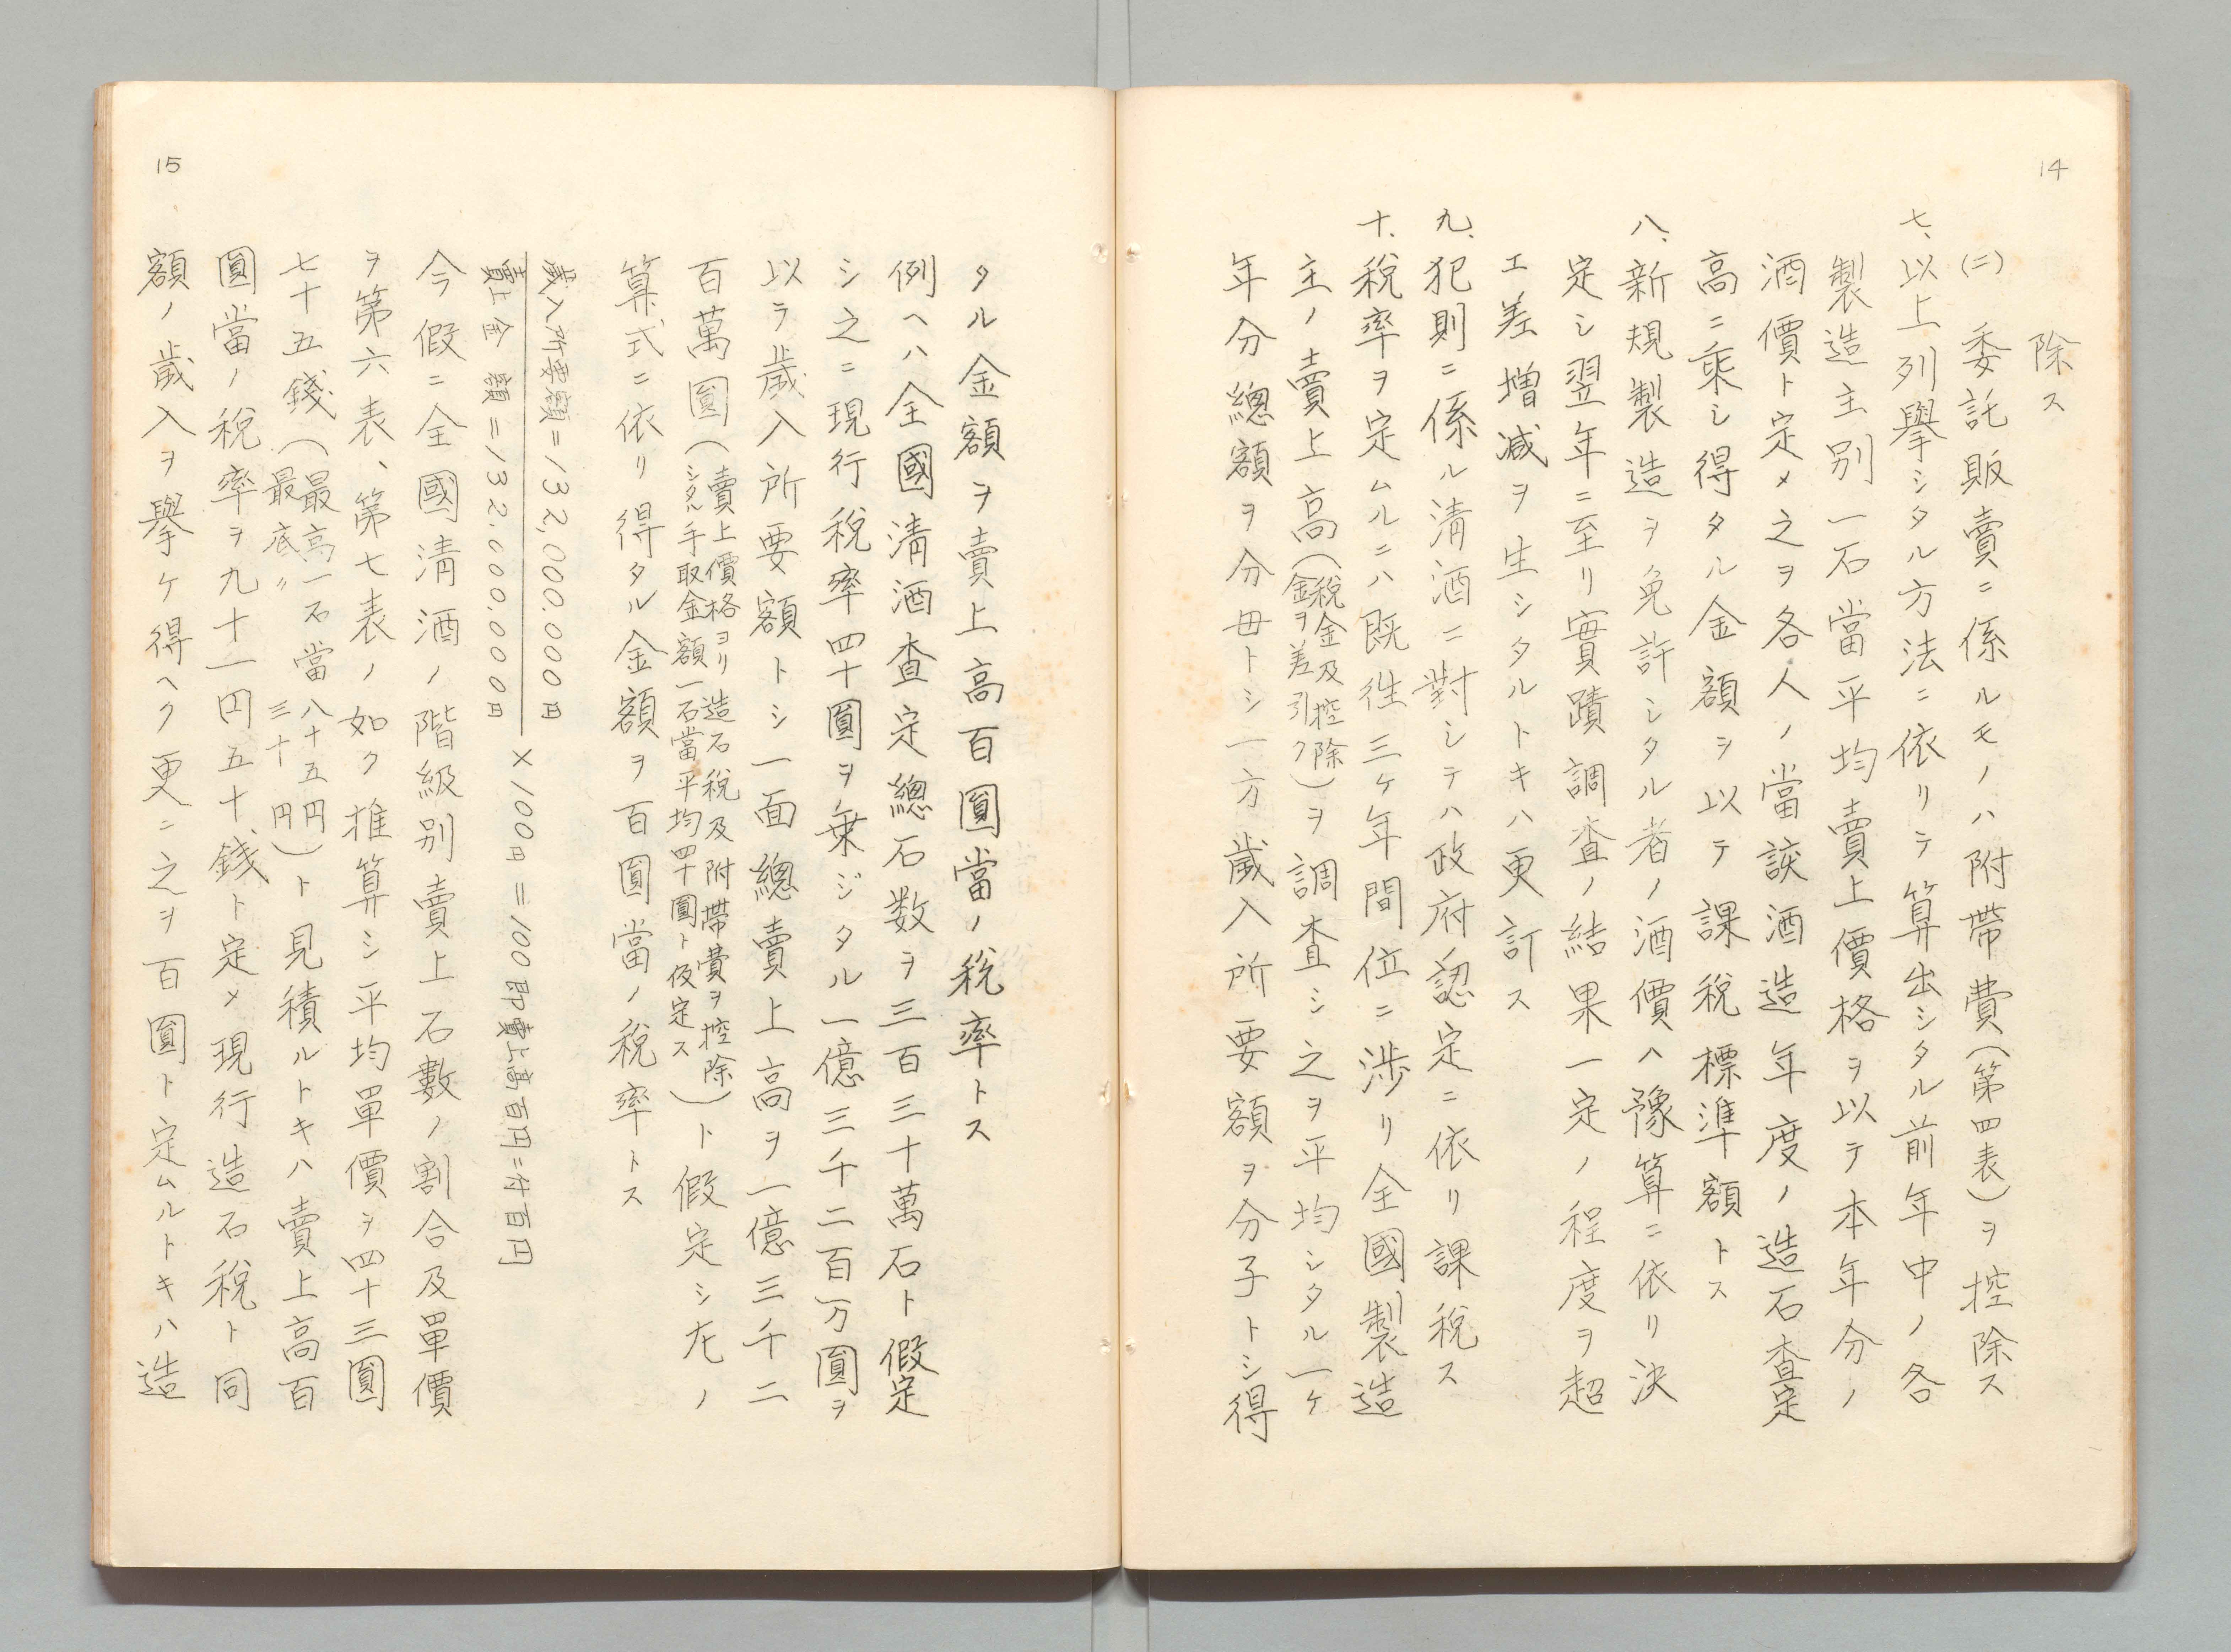 14
除ス
(ニ) 委託販賣ニ係ルモノハ附帶費(第四表)ヲ控除ス
七、以上列擧シタル方法ニ依リテ算出シタル前年中ノ各
製造主別一石當平均賣上價格ヲ以テ本年分ノ
酒價ト定メ之ヲ各人ノ當該酒造年度ノ造石査定
高ニ乘シ得タル金額ヲ以テ課税標準額トス
八、新規製造ヲ免許シタル者ノ酒價ハ豫算ニ依リ決
定シ翌年ニ至リ實蹟調査ノ結果一定ノ程度ヲ超
エ差増減ヲ生シタルトキハ更訂ス
九、犯則ニ係ル淸酒ニ對シテハ政府認定ニ依リ課税ス
十、税率ヲ定ムルニハ既徃三ヶ年間位ニ渉リ全國製造
主ノ賣上高(税金及控除金ヲ差引ク)ヲ調査シ之ヲ平均シタル一ケ
年分總額ヲ分毋トシ一方歳入所要額ヲ分子トシ得
15
タル金額ヲ賣上高百圓當ノ税率トス
例ヘハ全國淸酒査定總石数ヲ三百三十萬石ト假定
シ之ニ現行税率四十圓ヲ乗ジタル一億三千二百万圓ヲ
以ラ歳入所要額トシ一面總賣上高ヲ一億三千二
百萬圓(賣上價格ヨリ造石税及附帶費ヲ控除シタル手取金額一石當平均四十圓ト仮定ス)ト假定シ左ノ
算式ニ依リ得タル金額ヲ百圓當ノ税率トス
歳入所要額=132,000.000円
賣上金額=132.000.000円
×100円=100即賣上高百円ニ付百円
今假ニ全國淸酒ノ階級別賣上石數ノ割合及單價
ヲ第六表、第七表ノ如ク推算シ平均單價ヲ四十三圓
七十五錢(最高一石當八十五円 最底〃三十円)ト見積ルトキハ賣上高百
圓當ノ税率ヲ九十一円五十錢ト定メ現行造石税ト同
額ノ歳入ヲ擧ケ得ヘク更ニ之ヲ百圓ト定ムルトキハ造